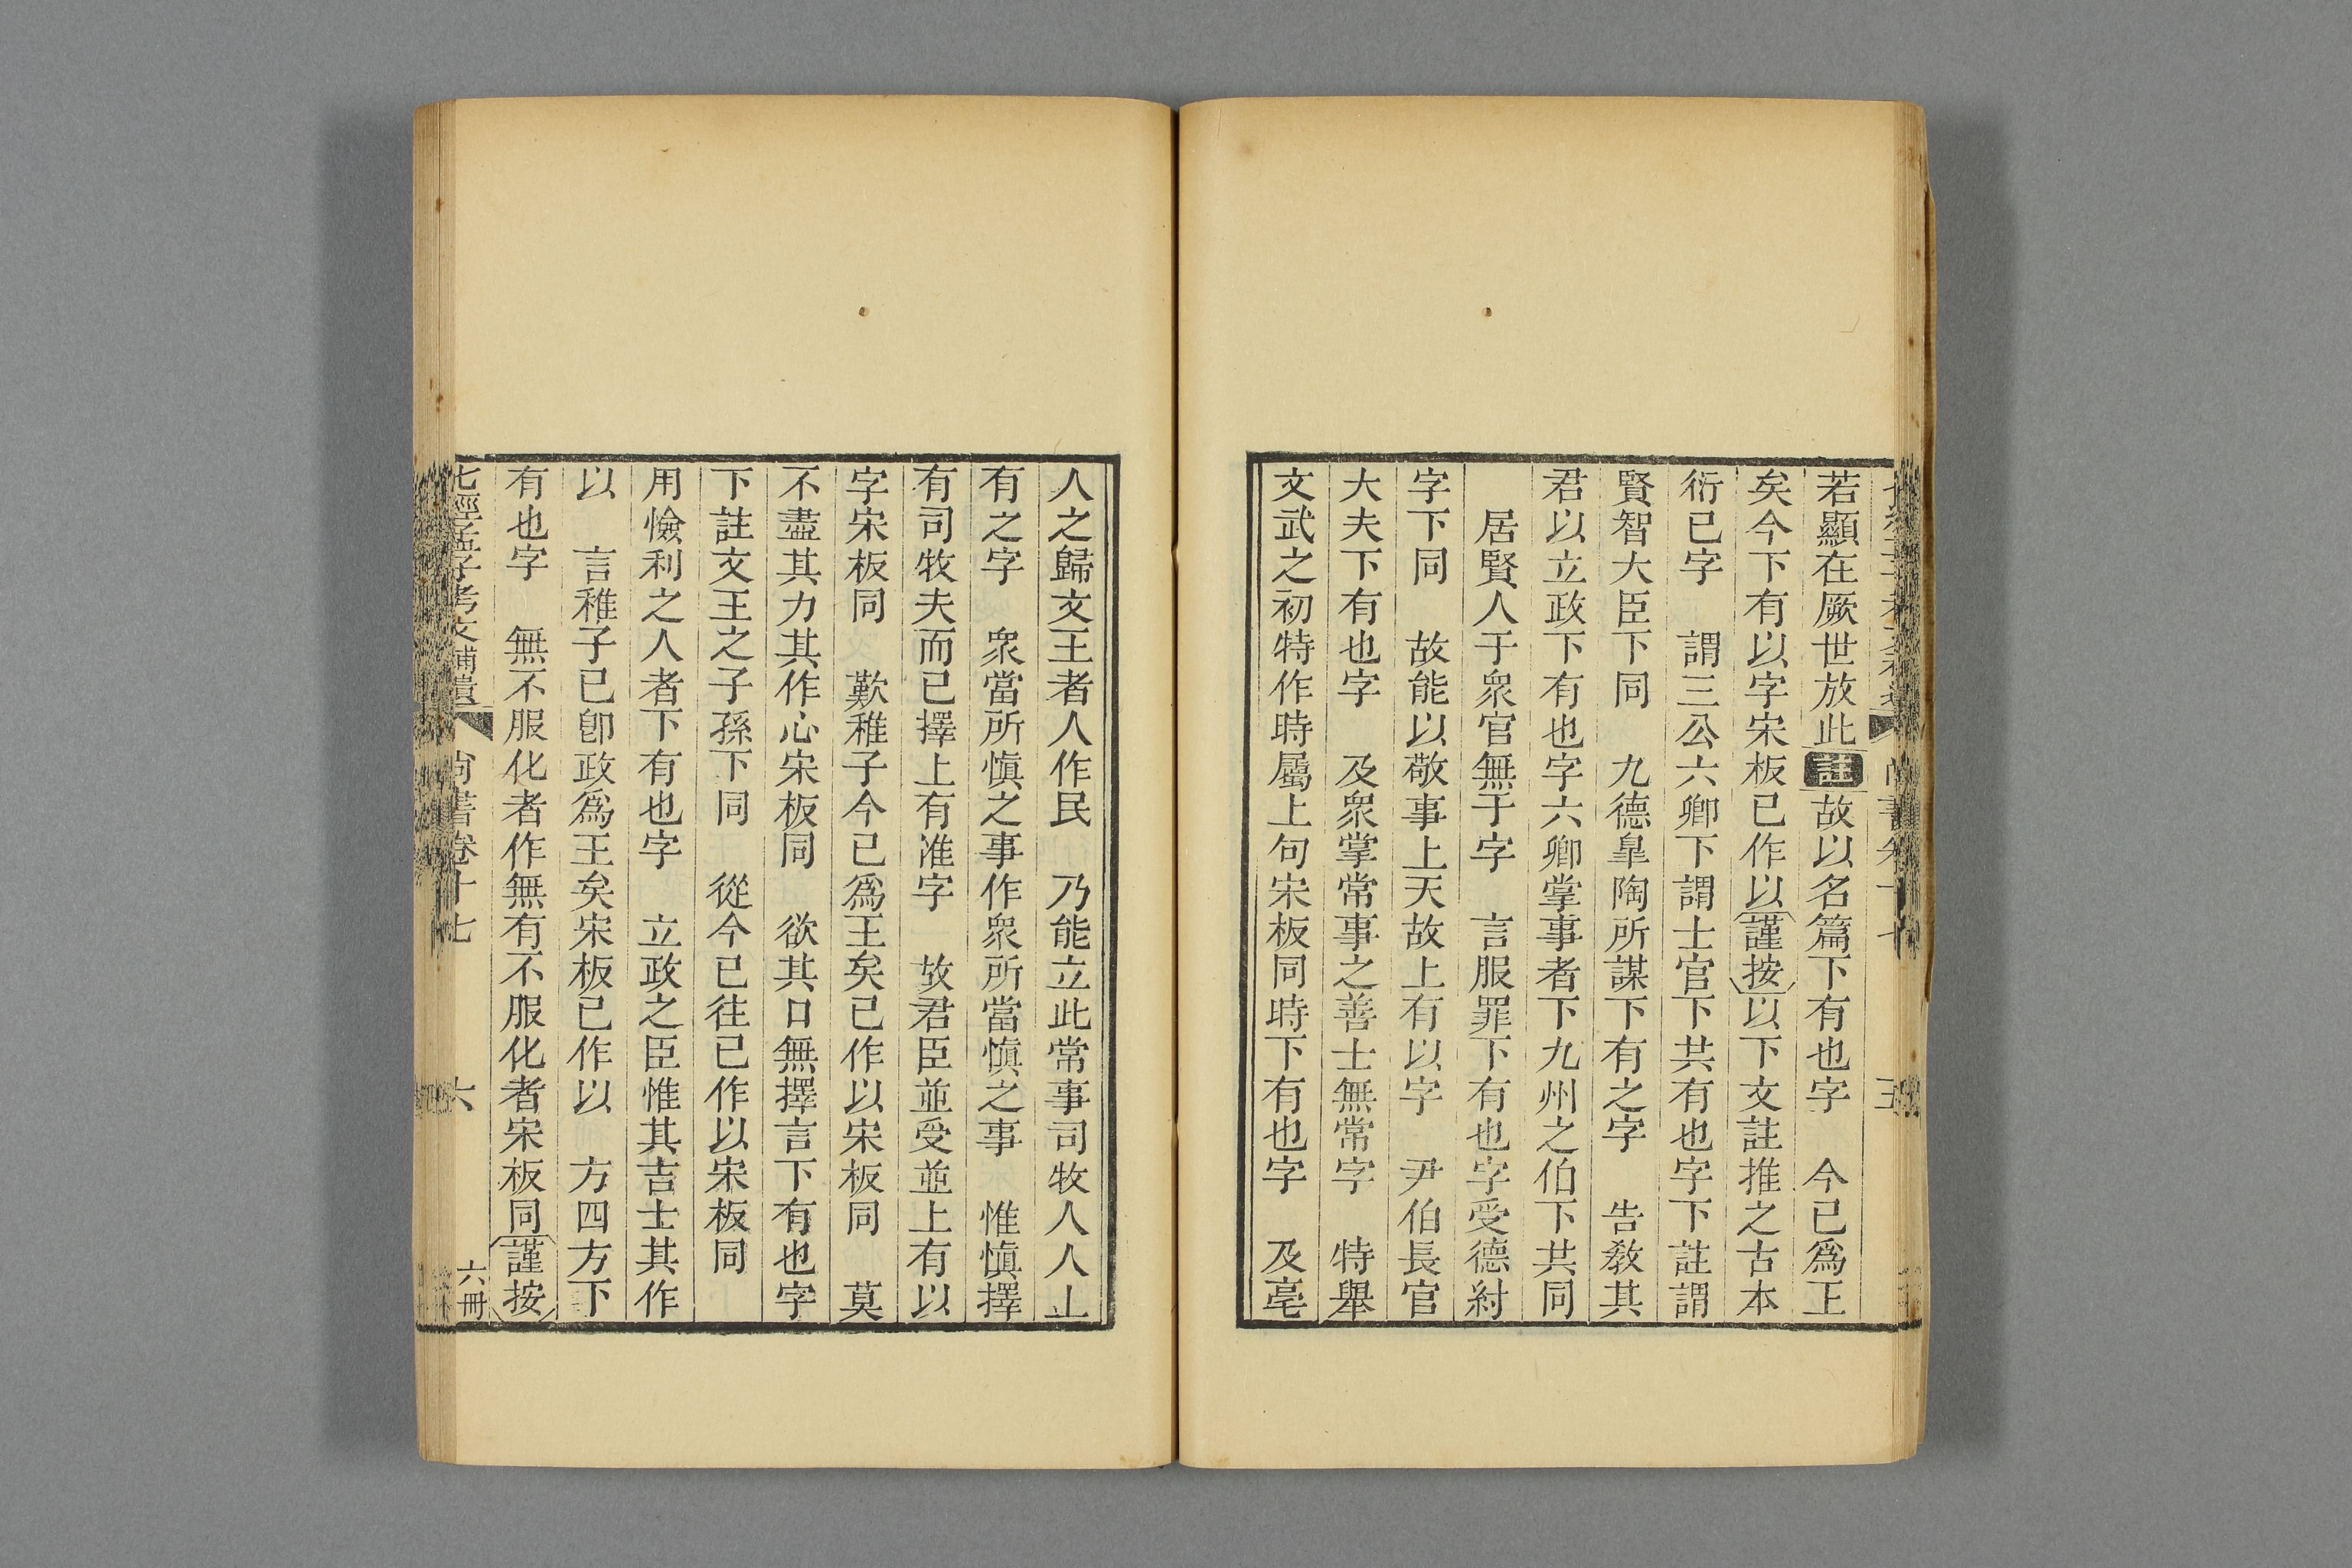 若顯在厥世放此註故以名篇下有也字　今已爲王
矣今下有以字宋板已作以謹按以下文註推之古本
衍已字　謂三公六卿下謂士官下共有也字下註謂
賢智大臣下同　九德臯陶所謀下有之字　告敎其
君以立政下有也字六卿掌事者下九州之伯下共同
居賢人于衆官無于字　言服罪下有也字受德紂
字下同　故能以敬事上天故上有以字　尹伯長官
大夫下有也字　及衆掌常事之善士無常字　特舉
文武之初特作時屬上句宋板同時下有也字　及亳
人之歸文王者人作民　乃能立此常事司牧人人止
有之字　衆當所愼之事作衆所當愼之事　惟愼擇
有司牧夫而已擇上有准字　故君臣並受並上有以
字宋板同　歎稚子今已爲王矣已作以宋板同　莫
不盡其力其作心宋板同　欲其口無擇言下有也字
下註文王之子孫下同　從今已往已作以宋板同
用憸利之人者下有也字　立政之臣惟其吉士其作
以　言稚子已卽政爲王矣宋板已作以　方四方下
有也字　無不服化者作無有不服化者宋板同謹按
七經孟子考文補遺　尚書卷十七　六　六冊